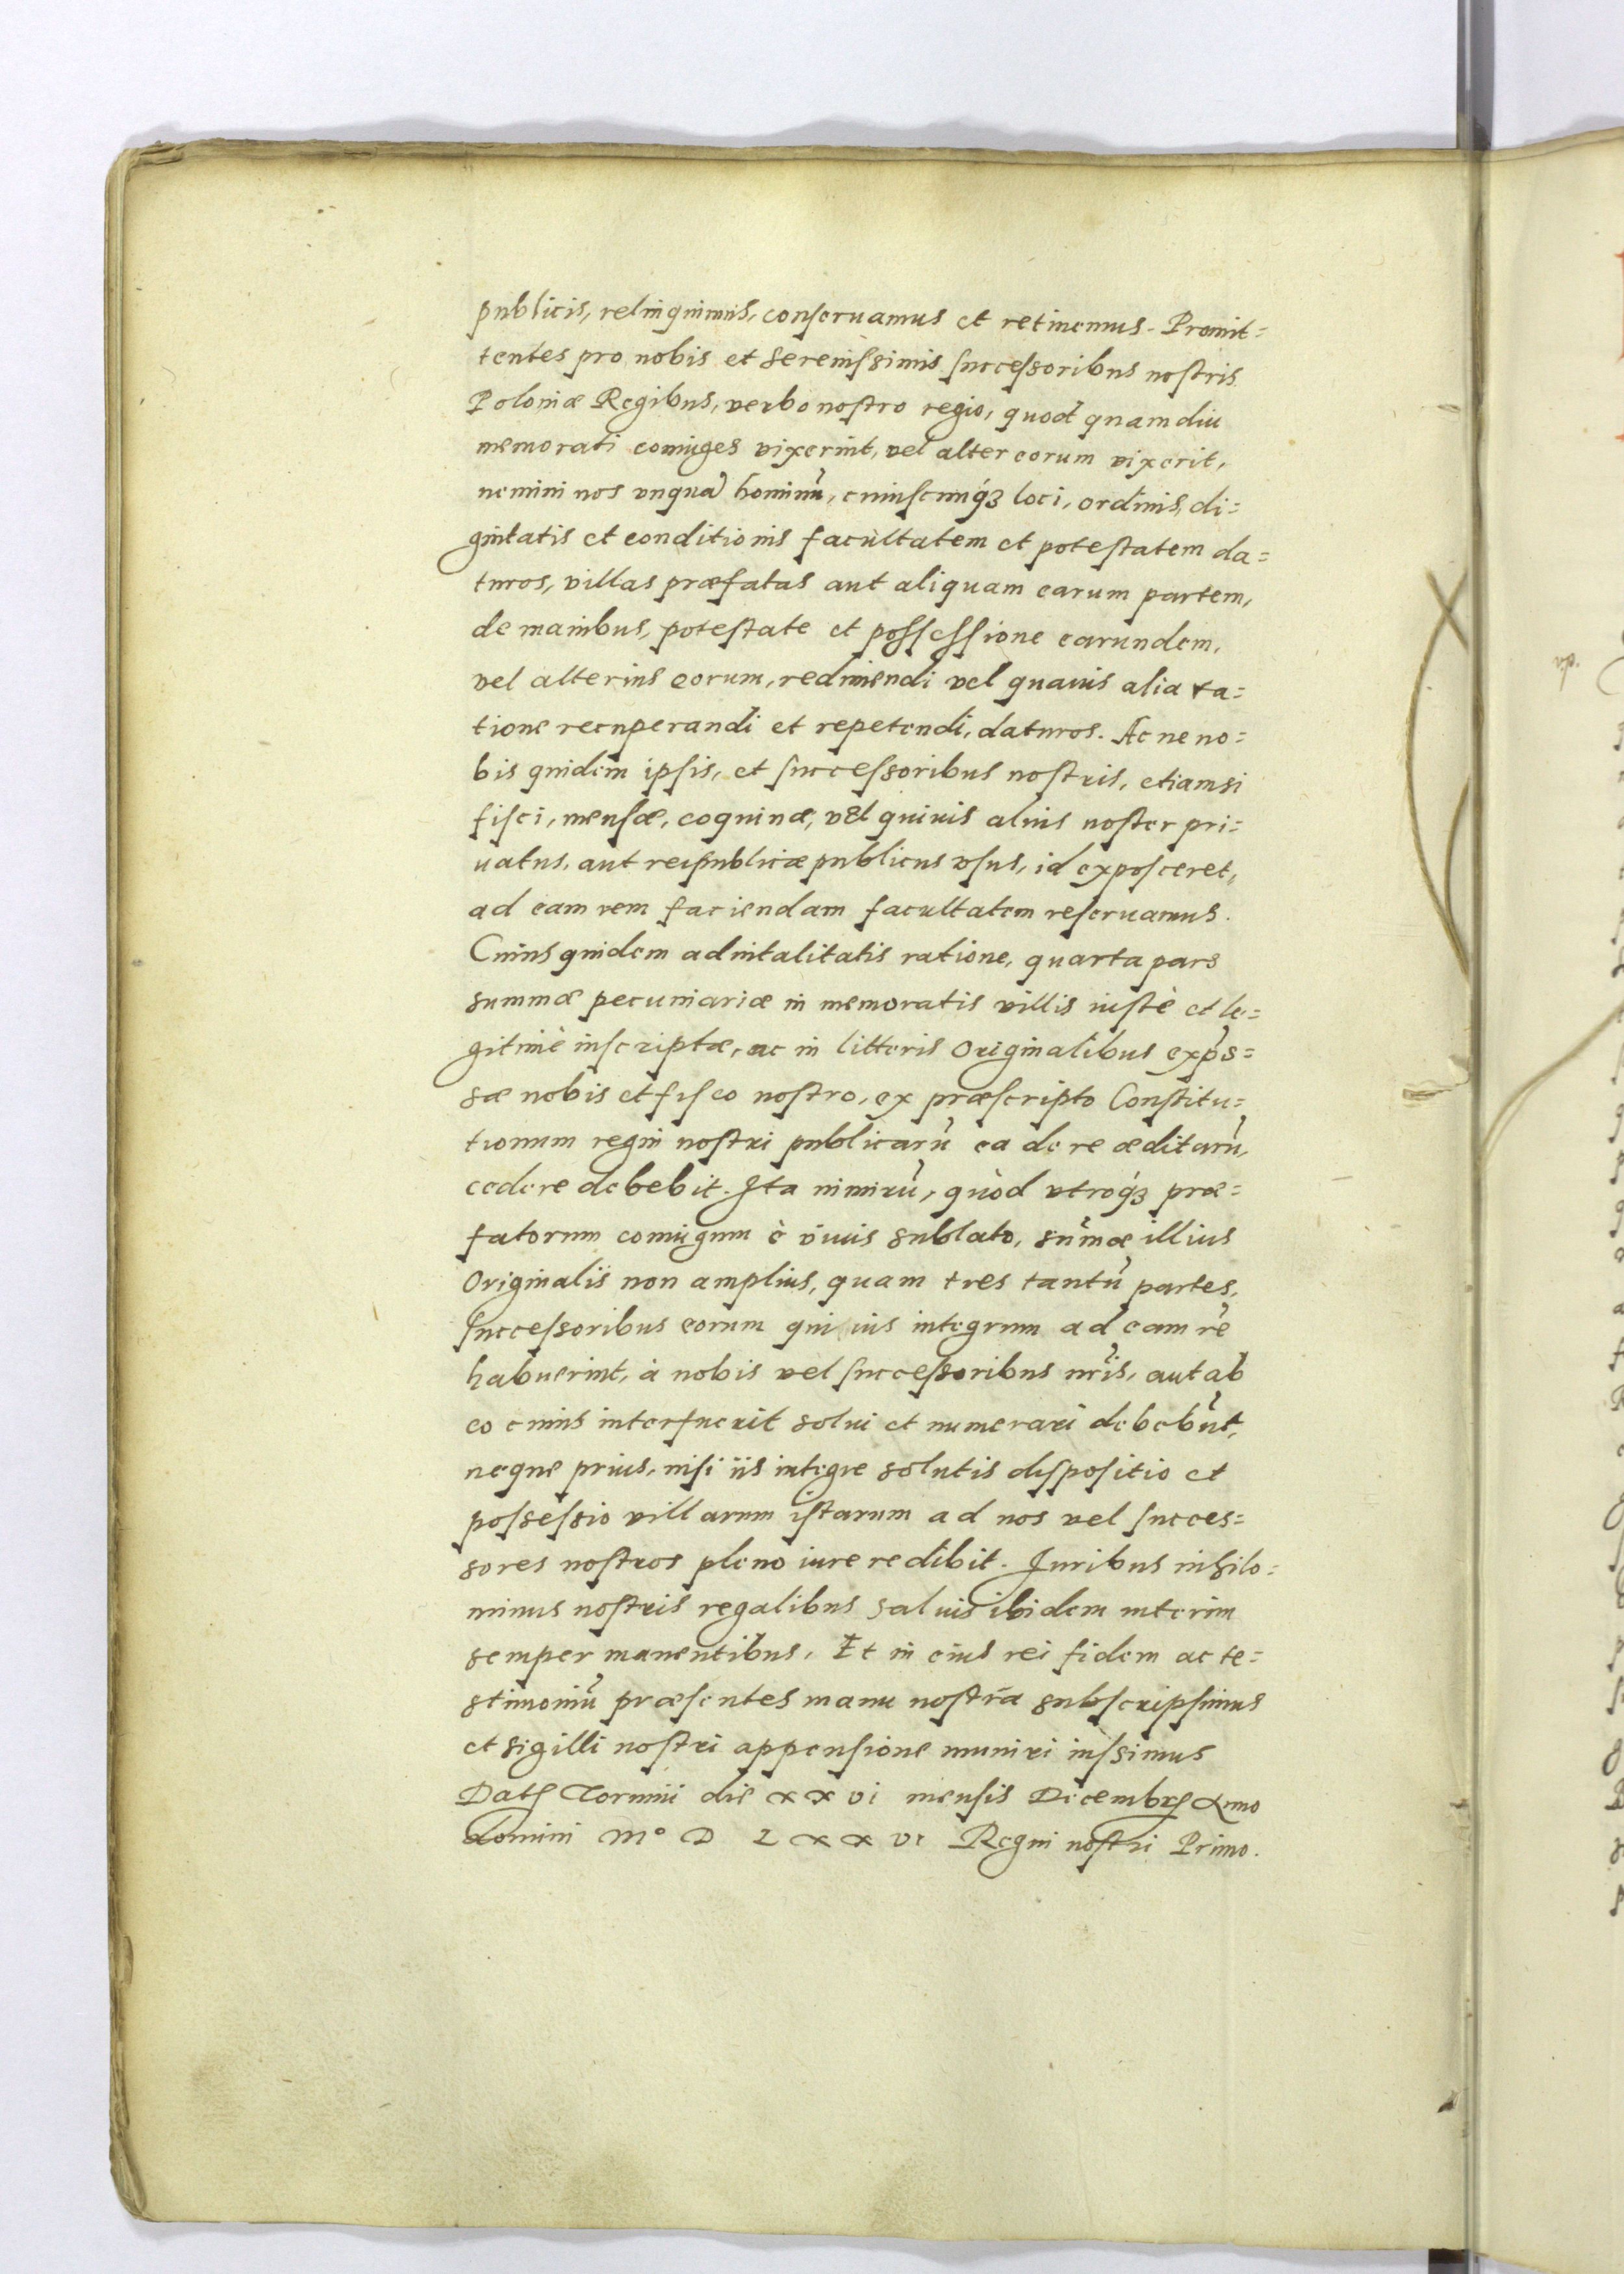 publicis, relinquimus, conseruamus et retinemus. Promit=
tentes pro nobis et serenissimis successoribus nostris
Poloniæ Regibus, verbo nostro regio, quod quamdiu
memorati coniuges vixerint, vel alter eorum vixerit,
nemini nos vnquā hominū, cuiuscunqꝫ loci, ordinis, di=
gnitatis et conditionis facultatem et potestatem da=
turos, villas præfatas aut aliquam earum partem,
de manibus, potestate et possessione earundem,
vel alterius eorum, redimendi vel quauis alia ra=
tione recuperandi et repetendi, daturos. Ac ne no=
bis quidem ipsis, et successoribus nostris, etiamsi
fisci, mensæ, coquinæ, vel quiuis alius noster pri=
uatus, aut reipublicæ publicus vsus, id exposceret,
ad eam rem faciendam facultatem reseruamus.
Cuius quidem aduitalitatis ratione, quarta pars
summæ pecuniariæ in memoratis villis iustè et le=
gitimè inscriptæ, ac in litteris Originalibus exp̄s=
sæ nobis et fisco nostro, ex præscripto Constitu=
tionum regni nostri publicarū ea de re æditarū,
cedere debebit. Ita nimirū, quòd vtroqꝫ præ=
fatorum coniugum è viuis sublato, sum̄æ illius
Originalis non amplius, quam tres tantū partes,
successoribus eorum qui ius integrum ad eam rē
habuerint, à nobis vel successoribus nr̄is, aut ab
eo cuius interfuerit solui et numerari debebūt,
neque prius, nisi iis integre solutis dispositio et
possessio villarum istarum ad nos vel succes=
sores nostros pleno iure redibit. Iuribus nihilo=
minus nostris regalibus saluis ibidem interim
semper manentibus. Et in eius rei fidem ac te=
stimoniū præsentes manu nostra subscripsimus
et sigilli nostri appensione muniri iussimus
Datꝭ Torunii die xxvi mensis Decembrꝭ Anno
Domini M° D LXXVI Regni nostri Primo.
vp.